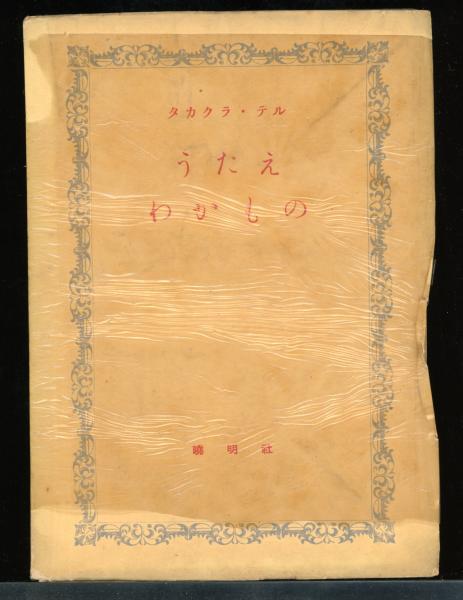 タカクラ・テル
うたえ
わかもの
曉明社